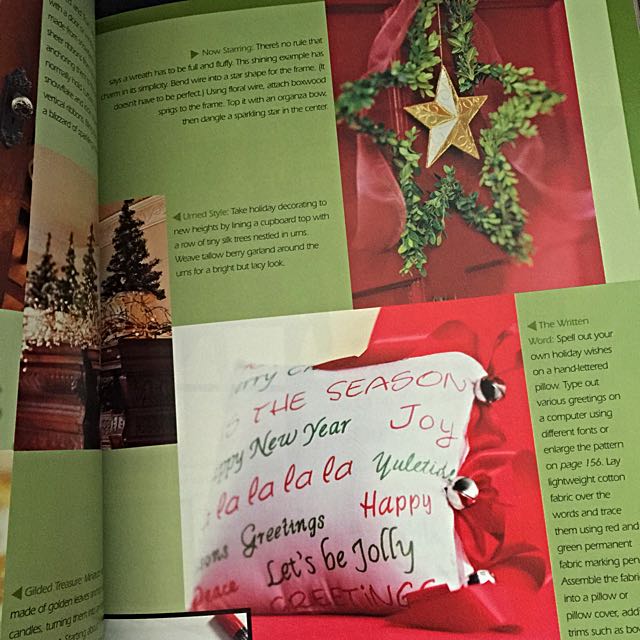 with a door
made from
sheer ribbons
anchoring them
normally hold
snowflake and
vertical ribbons.
a blizzard of
Now Starring: There's no rule that
says a wreath has to be full and fluffy. This shining example has
charm in its simplicity. Bend wire into a star shape for the frame. (It
doesn't have to be perfect.) Using floral wire, attach boxwood
sprigs to the frame. Top it with an organza bow,
then dangle a sparkling star in the center.
Urned Style: Take holiday decorating to
new heights by lining a cupboard top with
a row of tiny silk trees nestled in urns.
Weave tallow berry garland around the
urns for a bright but lacy look.
The Written
Word: Spell out your
own holiday wishes
on a hand-lettered
pillow. Type out
various greetings on
a computer using
different fonts or
enlarge the pattern
on page 156. Lay
lightweight cotton
fabric over the
words and trace
them using red and
green permanent
fabric marking pen
Assemble the fabri
into a pillow or
pillow cover, add
trims such as bo
THE SEASON
ppy New Year Joy
la la la la la Yuletide
ons Greetings Happy
Peace Let's be Jolly
GREETINGS
Gilded Treasure:
made of golden leaves
candles, turning them